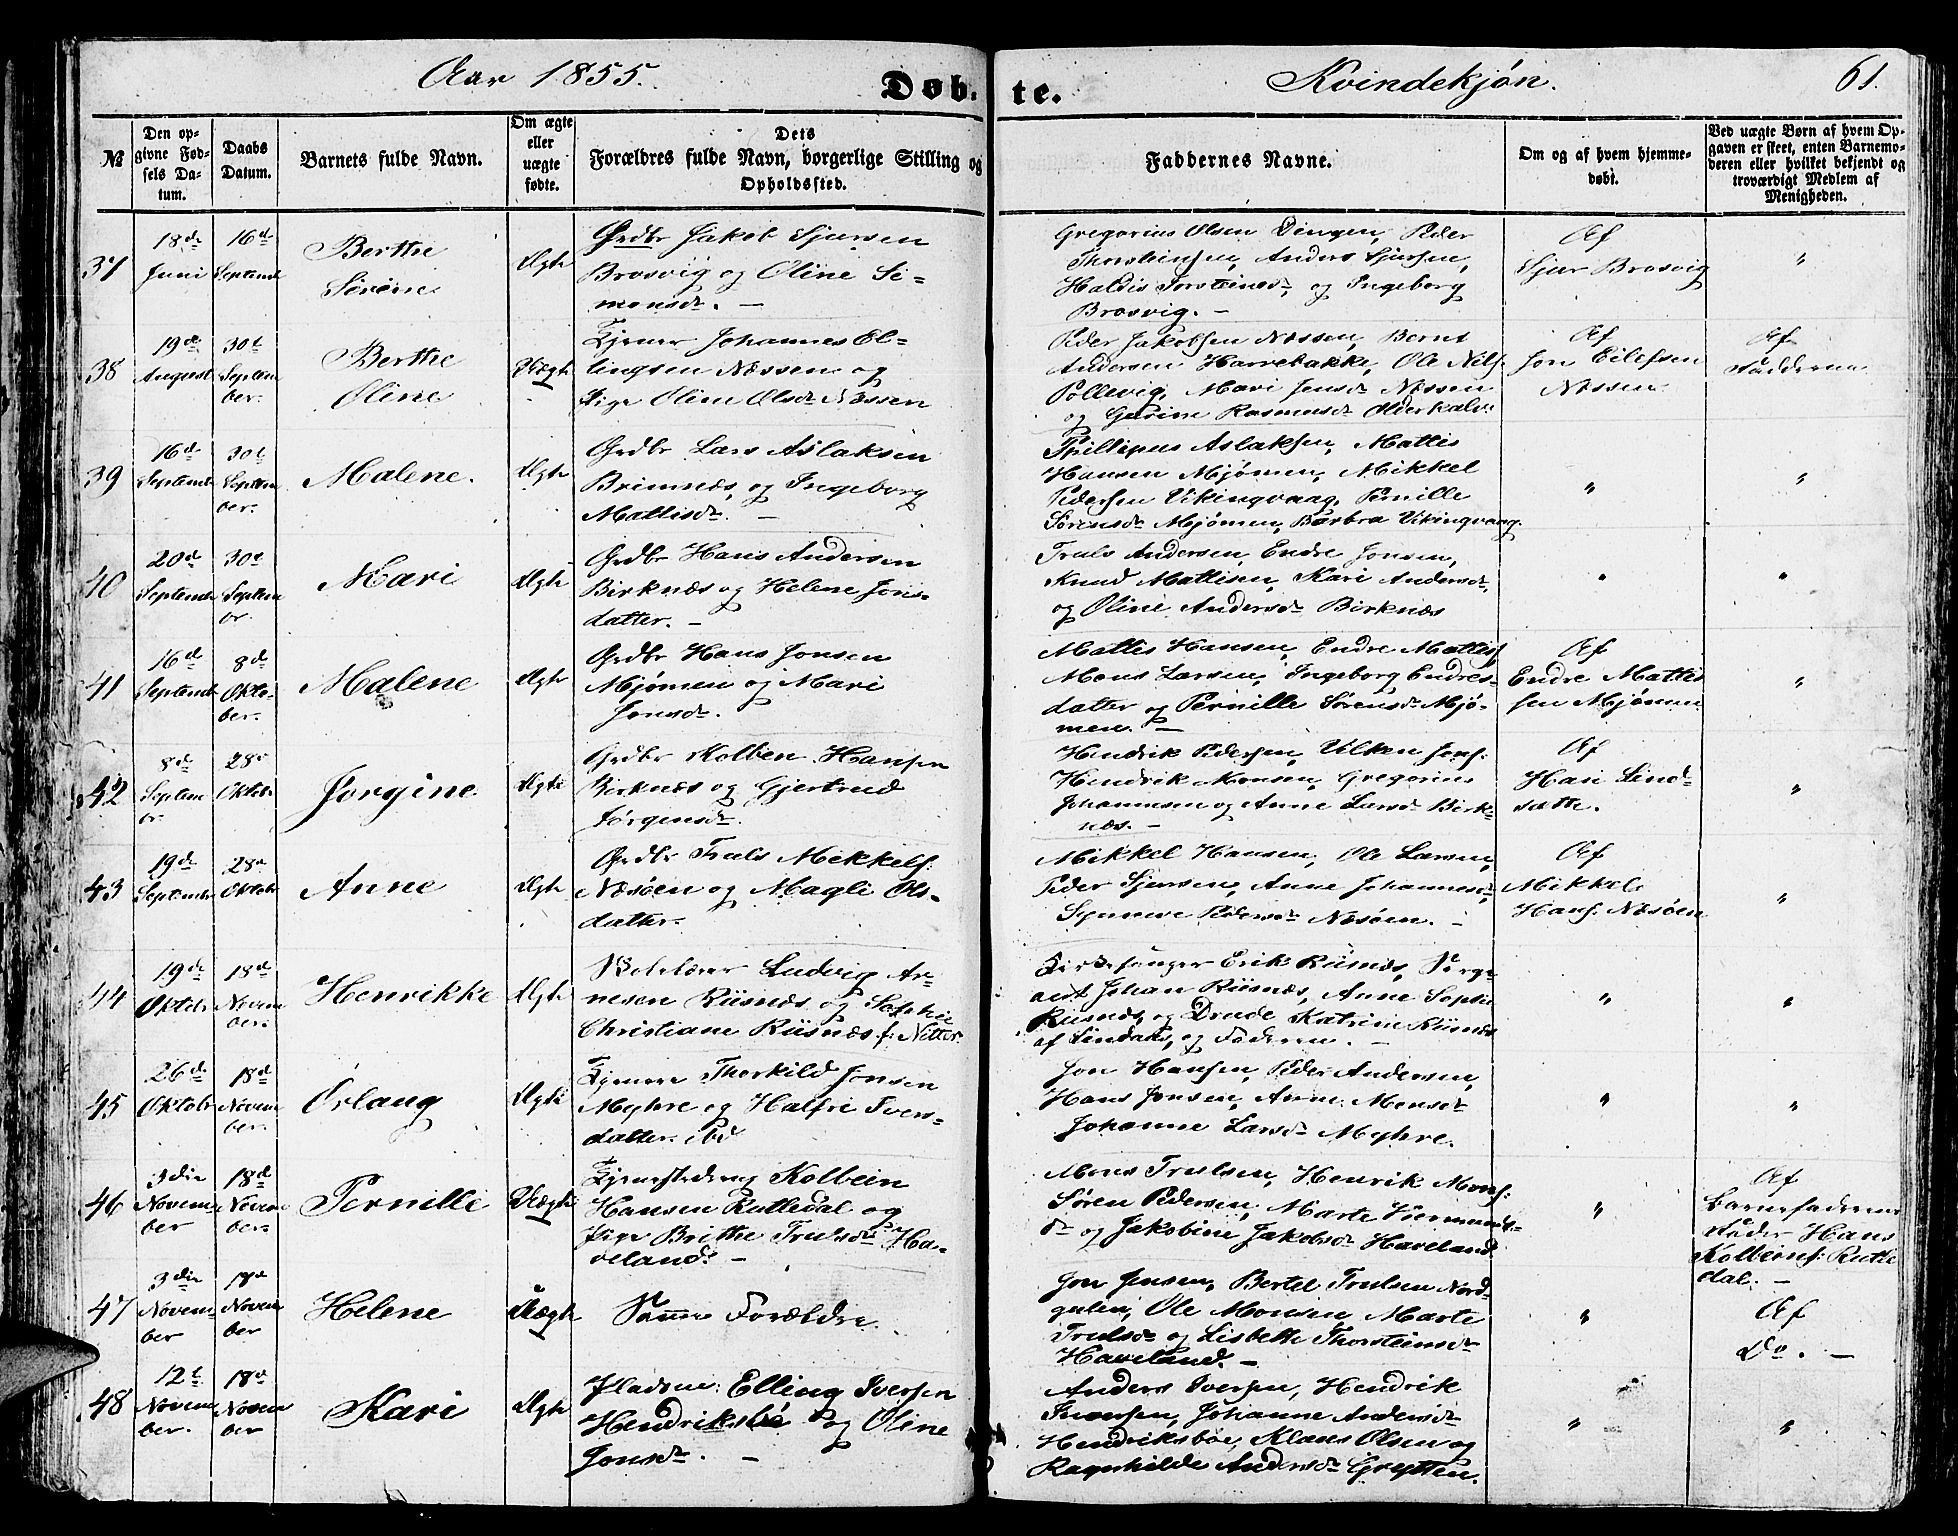 Aar 1855.
Døb-
te.
Kvindekjøn.
61.
№
Den op-
givne Fød-
sels Da-
tum.
Daabs
Datum.
Barnets fulde Navn.
Om ægte
eller
uægte
fødte.
Dets
Forældres fulde Navn, borgerlige Stilling og
Opholdssted.
Faddernes Navne.
Om og af hvem hjemme-
døbt.
Ved uægte Børn af hvem Op-
gaven er skeet, enten Barnemo-
deren eller hvilket bekjendt og
troværdigt Medlem af
Menigheden.
37
18de
Juni
16de
Septemb
Berthe
Sørine
Ægte
Grdbr Jakob Sjursen
Brosvig og Oline Si-
monsdr. —
Gregorius Olsen Dingen, Peder
Thorsteinsen, Anders Sjursen,
Haldis Torsteinsdr, og Ingeborg
Brosvig. —
Af
Sjur Brosvig
"
38
19de
August
30te
Septem
ber.
Berthe
Oline
Uægte
Tjener Johannes El-
lingsen Næssen og
Pige Oline Olsdr Næssen
Peder Jakobsen Næssen, Bernt
Andersen Harrebakke, Ole Nils.
Pollevig, Mari Jensdr Næssen
og Gurine Rasmusdr Olderkalv.
Af
Jon Eilefsen
Nessen.
Af
Fadderne
39
16de
Septemb
30te
Septem
ber.
Malene.
Ægte
Grdbr Lars Aslaksen
Brimnæs, og Ingeborg
Mattisdr. —
Phillipus Aslaksen, Mattis
Hansen Mjømen, Mikkel
Pedersen Vikingvaag, Pernille
Sørensdr Mjømen, Barbra Vikingvaag.
"
"
40
20de
Septemb
30te
Septem
br.
Mari
Ægte
Grdbr Hans Andersen
Birknæs og Helene Jons-
datter. —
Truls Andersen, Endre Jonsen,
Knud Mattisen, Kari Andersdr,
og Oline Andersdr Birknæs
"
"
41
16de
Septemb
8de
Okto-
ber.
Malene
Ægte
Grdbr Hans Jonsen
Mjømen og Mari
Jonsdr.
Mattis Hansen, Endre Mattis.
Mons Larsen, Ingeborg Endres-
datter og Pernille Sørensdr Mjø-
men. —
Af
Endre Mattis
sen Mjømen
"
42
8de
Septem
br.
28de
Oktobr
Jørgine
Ægte
Grdbr Kolben Hansen
Birknæs og Gjertrud
Jørgensdr.
Hendrik Pedersen, Vilken Jons.
Hendrik Monsen, Gregorius
Johannesen og Anne Larsdr Birk-
næs. —
Af
Hans Lind-
sætte.
"
43
19de
Septembr
28de
Oktobr
Anne
Ægte
Grdbr Truls Mekkels.
Næsøen og Magli Ols-
datter.
Mikkel Hansen, Ole Larsen,
Peder Sjursen, Anne Johannesdr
Synneve Pedersdr Næsøen. —
Af
Mikkel
Hans. Næsøen
"
44
19de
Oktobr
18de
Novem
ber.
Henrikke
Ægte
Skolelærer Ludvig Ar-
nesen Riisnæs og Sophie
Christiane Riisnæs f: Nitter.
Kirkesanger Erik Riisnæs, Serge-
ant Johan Riisnæs, Anne Sophie
Riisnæs, og Drude Katrine Riisnæs
af Lindaas, og Faderen. —
"
"
45
26de
Oktobr
18de
Novem
ber.
Ørlaug
Ægte
Tjener Thorkild Jonsen
Myhre og Halfri Ivers-
datter. ibd
Jon Hansen, Peder Andersen,
Hans Jonsen, Anne Monsdr
Johanne Larsdr Myhre.
"
"
46
3die
Novem
ber
18de
Novem
ber.
Pernille
Uægte
Kolbein
Hansen Rutledal og
Pige Brithe Trulsdr Ha-
veland. —
Mons Trulsen, Henrik Mons.
Søren Pedersen, Marte
dr og Jakobine Jakobsdr Haveland
"
Af
Barnefaderens
Fader Hans
Kolbeins. Rutle
dal. —
47
3die
Novem
ber
18de
Novem
ber
Helene
Uægte
Samme Forældre.
Jon Jensen, Bertel Trulsen Nord-
gulen, Ole Monsen, Marte
Trulsdr og Lisbette Thorsteinsdr
Haveland. —
"
Af
Do. —
48
12te
Novem
ber.
18de
Novem
ber
Kari
Ægte
Pladsm: Elling Iversen
Hendriksbøe og Oline
Jonsdr. —
Anders Iversen, Hendrik
Iversen, Johanne Andersdr
Hendriksbøe, Klaus Olsen og
Ragnhilde Andersdr Grytten.
"
"